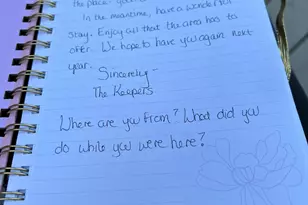 the place. your
In the meantime, have a wonderful
stay. Enjoy all that the area has to
offer. We hope to have you again next
year.
Sincerely-
The Keepers
Where are you from? What did you
do while you were here?